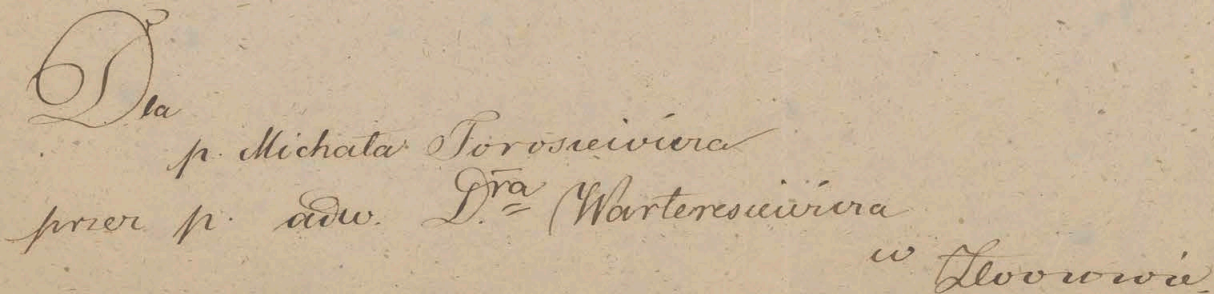 Dla
p. Michała Torosiewicza
przez p. adw. Dra Warteresiewicza
w Lwowie